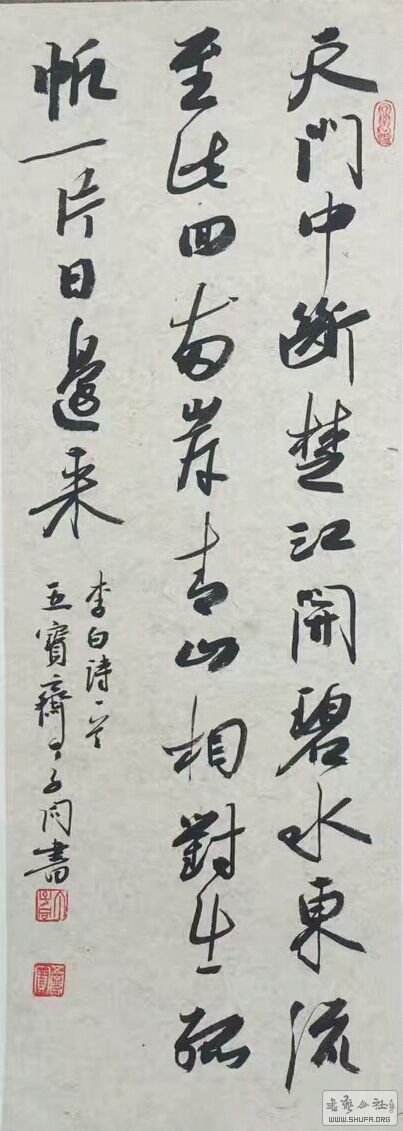 天門中斷楚江開碧水東流
至此回兩岸青山相對出孤
帆一片日邊来
李白詩一首
五寶齋子問書
書藝公社
WWW.SHUFA.ORG